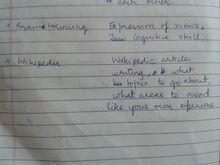 to each other.
• Brainstorming Expression of views,
low cognitive skill.
• Wikipedia Wikipedic article
writing, what
topics to go about,
what areas to avoid
like your own opinions